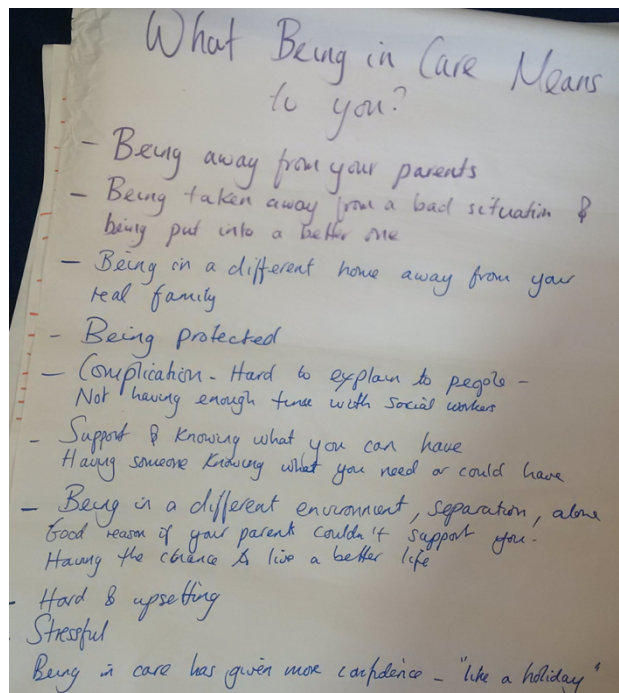 What Being in Care Means
to you?
- Being away from your parents
- Being taken away from a bad situation &
being put into a better one
- Being in a different home away from your
real family
- Being protected
- Complication - Hard to explain to people -
Not having enough time with social workers
- Support & knowing what you can have
Having someone knowing what you need or could have
- Being in a different environment, separation, alone
Good reason if your parent couldn't support you.
Having the chance to live a better life
- Hard & upsetting
- Stressful
Being in care has given more confidence - "like a holiday"